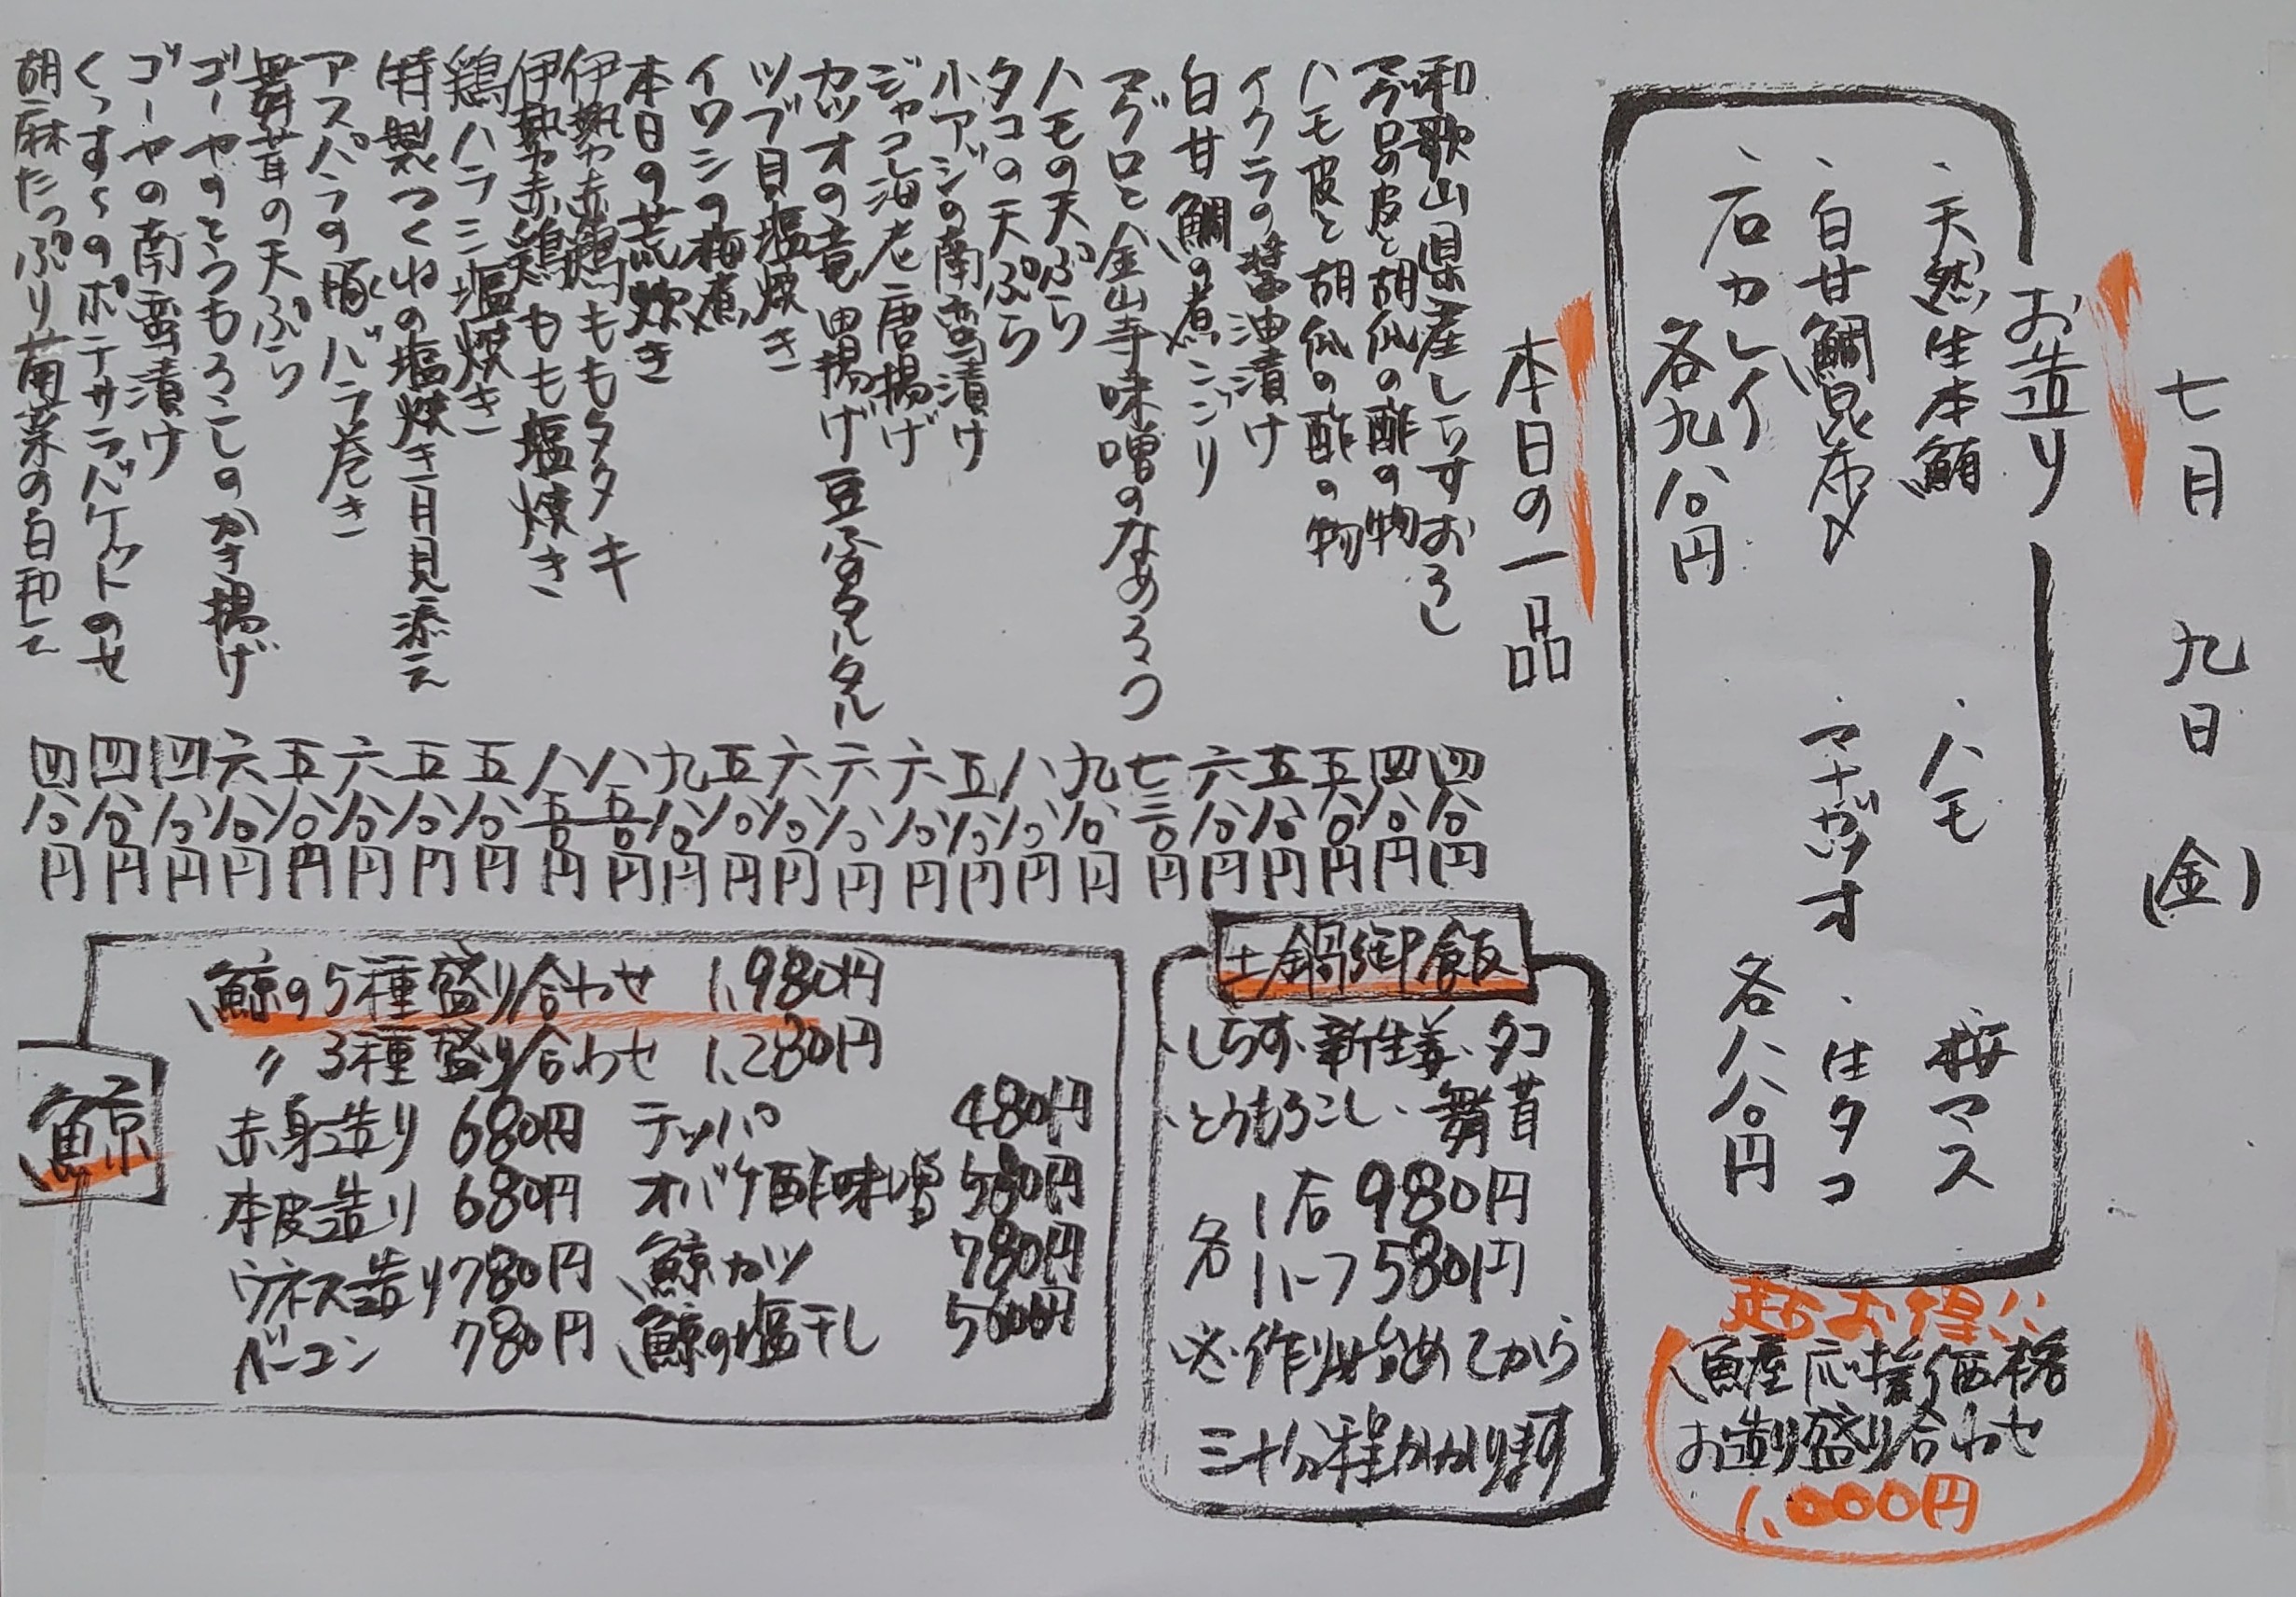 七月 九日 (金)
お造り
・天然生本鮪 ・ハモ 桜マス
・白甘鯛昆布〆 ・マナガツオ ・生タコ
・石カレイ
各九八〇円 各八八〇円
超お得!!
魚屋応援価格
お造り盛り合わせ
1,000円
本日の一品
和歌山県産しらすおろし 四八〇円
マグロの皮と胡瓜の酢の物 四八〇円
ハモ皮と胡瓜の酢の物 五八〇円
イクラの醤油漬け 五八〇円
白甘鯛の煮こごり 六八〇円
マグロと金山寺味噌のなめろう 七三〇円
ハモの天ぷら 九八〇円
タコの天ぷら 八八〇円
小アジの南蛮漬け 五八〇円
ジャコ海老唐揚げ 六八〇円
カツオの竜田揚げ豆ふタルタル 六八〇円
ツブ貝塩焼き 六八〇円
イワシの梅煮 五八〇円
本日の荒炊き 九八〇円
伊勢赤鶏ももタタキ 八五〇円
伊勢赤鶏もも塩焼き 八五〇円
鶏ハラミ塩焼き 五八〇円
特製つくねの塩焼き月見添え 五八〇円
アスパラの豚バラ巻き 六八〇円
舞茸の天ぷら 五八〇円
ゴーヤのとうもろこしのかき揚げ 六八〇円
ゴーヤの南蛮漬け 四八〇円
くっすんのポテサラバケットのせ 四八〇円
胡麻たっぷり菊菜の白和え 四八〇円
土鍋御飯
・しらす・新生姜・タコ
・とうもろこし・舞茸
各 1合 980円
ハーフ 580円
※作り始めてから
三十分程かかります
鯨
鯨の5種盛り合わせ 1,980円
〃 3種盛り合わせ 1,280円
赤身造り 680円 テッパ 480円
本皮造り 680円 オバケ酢味噌 580円
ウネス造り 780円 鯨カツ 780円
ベーコン 780円 鯨の塩干し 500円